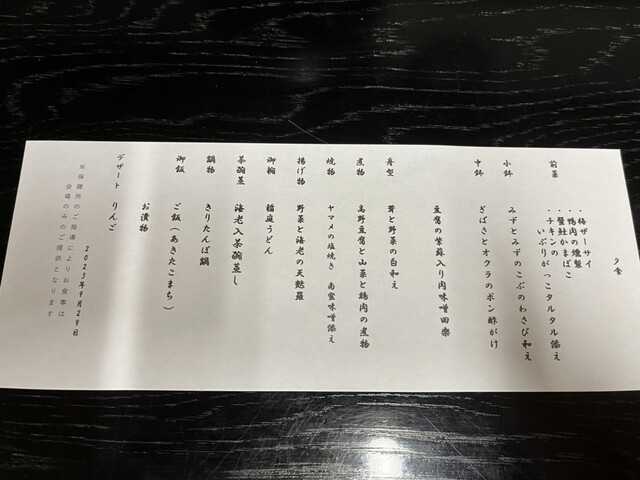 夕食
前菜
・梅ザーサイ
・鴨肉の燻製
・蟹鮭かまぼこ
・チキンの
いぶりがっこタルタル添え
小鉢 みずとみずのこぶのわさび和え
中鉢 ぎばさとオクラのポン酢がけ
豆腐の紫蘇入り肉味噌田楽
舟型 茸と野菜の白和え
煮物 高野豆腐と山菜と鶏肉の煮物
焼物 ヤマメの塩焼き 南蛮味噌添え
揚げ物 野菜と海老の天麩羅
御椀 稲庭うどん
茶碗蒸 海老入茶碗蒸し
鍋物 きりたんぽ鍋
御飯 ご飯(あきたこまち)
お漬物
デザート りんご
2023年9月29日
※保健所のご指導によりお食事は
会場のみのご提供となります